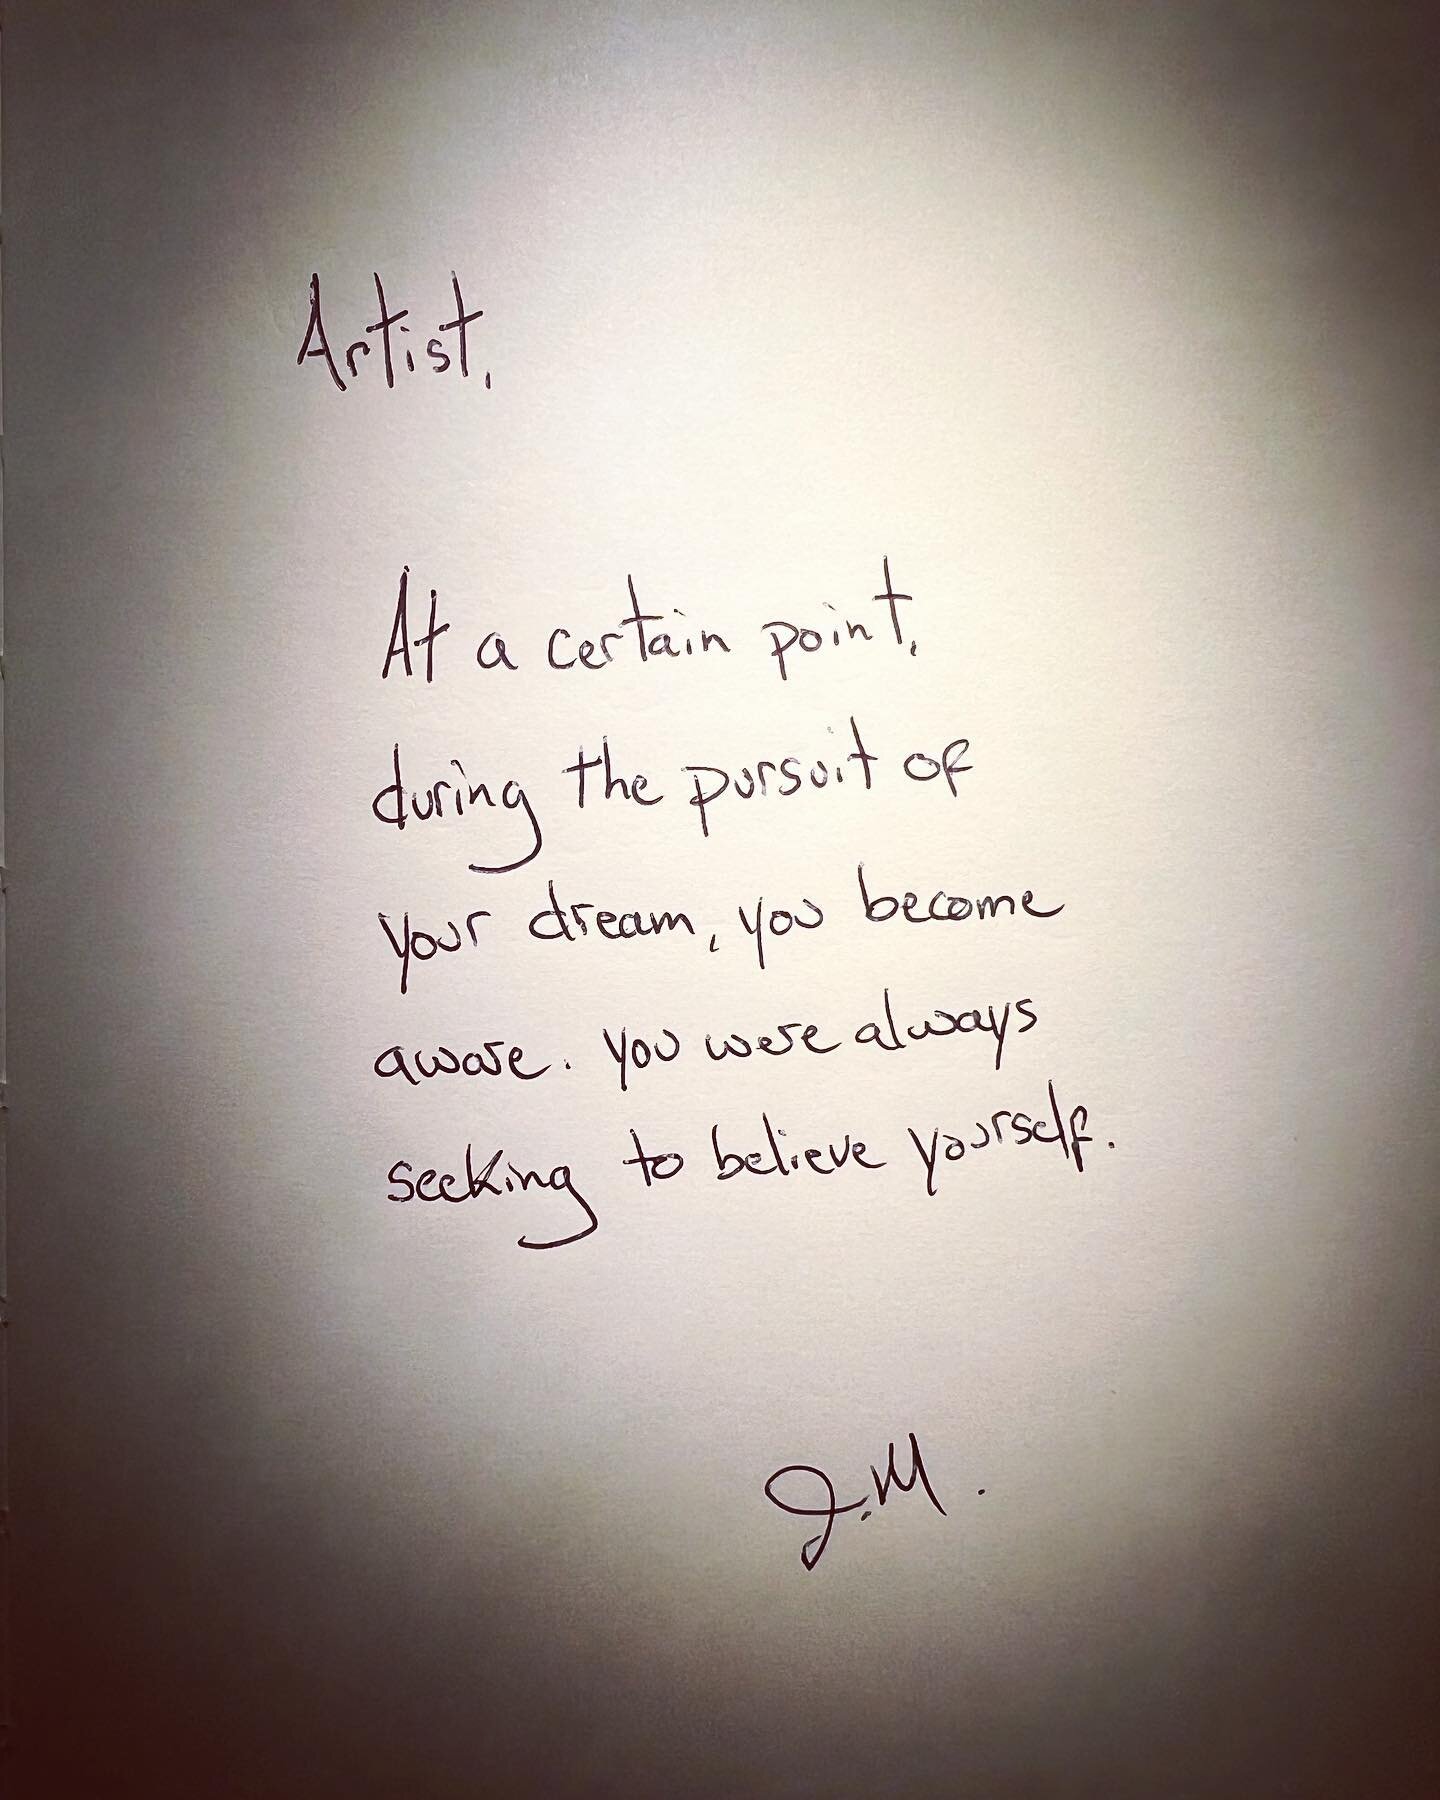 Artist,
At a certain point,
during the pursuit of
your dream, you become
aware. You were always
seeking to believe yourself.
J.M.